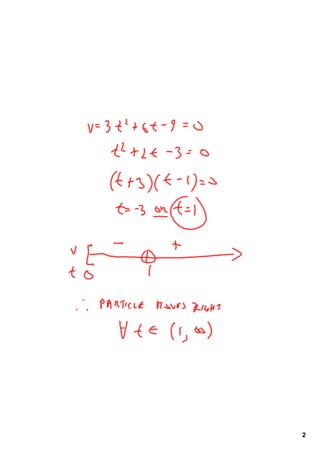 v = 3t² + 6t - 9 = 0
t² + 2t - 3 = 0
(t+3)(t-1) = 0
t = -3 or t = 1
v - +
t 0 1
∴ PARTICLE MOVES RIGHT
∀ t ∈ (1, ∞)
2